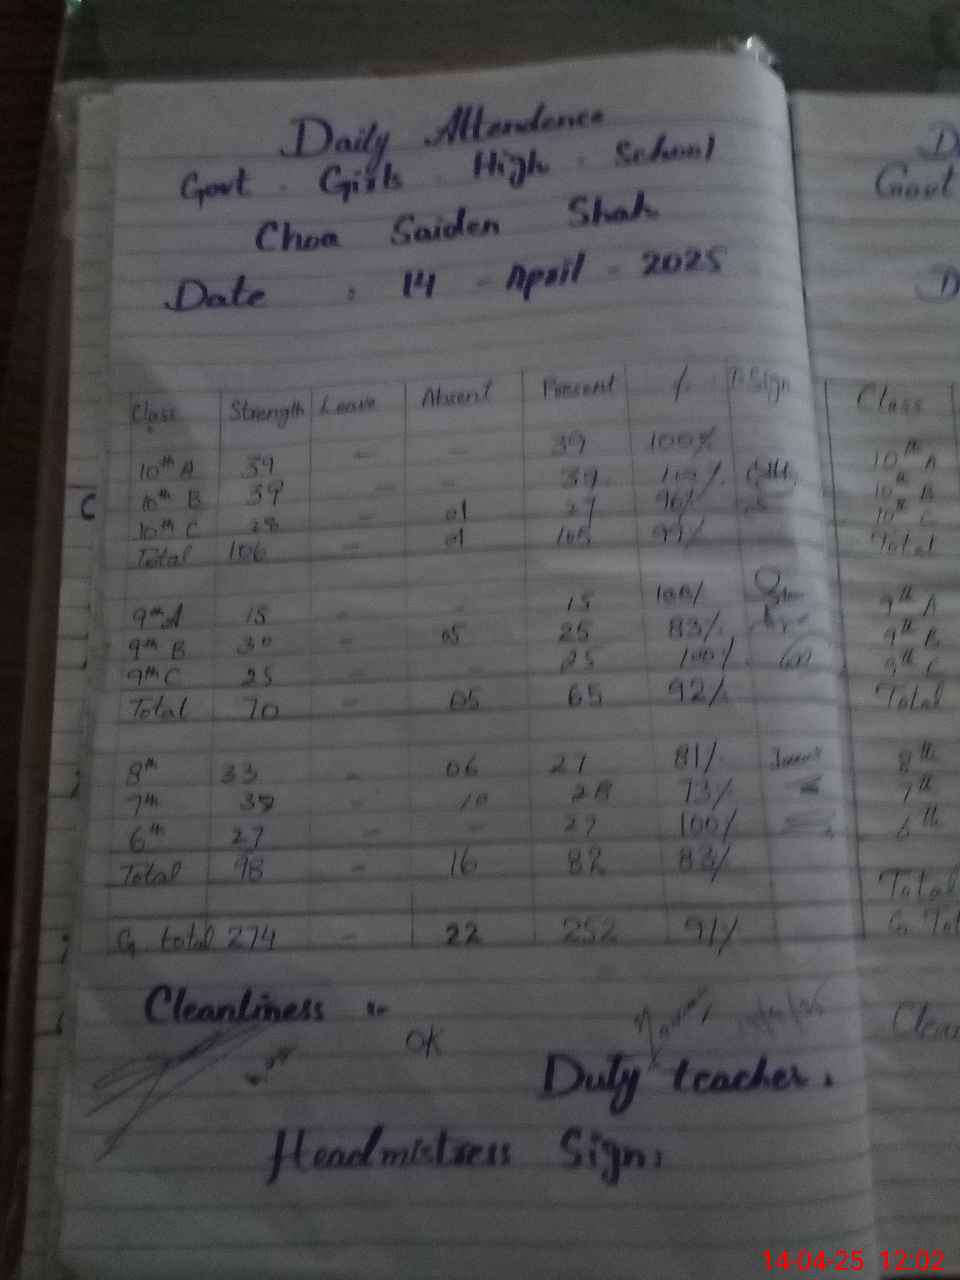 Daily Attendence
Govt. Girls. High. School
Choa Saiden Shah
Date : 14 - April - 2025
Class Strength Leave Absent Present % T.Sign
10th A 39 - - 39 100%
10th B 39 - - 39 100%
10th C 28 - 01 27 96%
Total 106 - 01 105 99%
9th A 15 - - 15 100%
9th B 30 - 05 25 83%
9th C 25 - - 25 100%
Total 70 - 05 65 92%
8th 33 - 06 27 81%
7th 38 - 10 28 73%
6th 27 - - 27 100%
Total 98 - 16 82 83%
G total 274 - 22 252 91%
Cleanliness :-
OK
Duty teacher.
Headmistress Sign:
D
Govt
D
Class
10th A
10th B
10th C
Total
9th A
9th B
9th C
Total
8th
7th
6th
Total
G. Tot
Clean
C
14-04-25 12:02